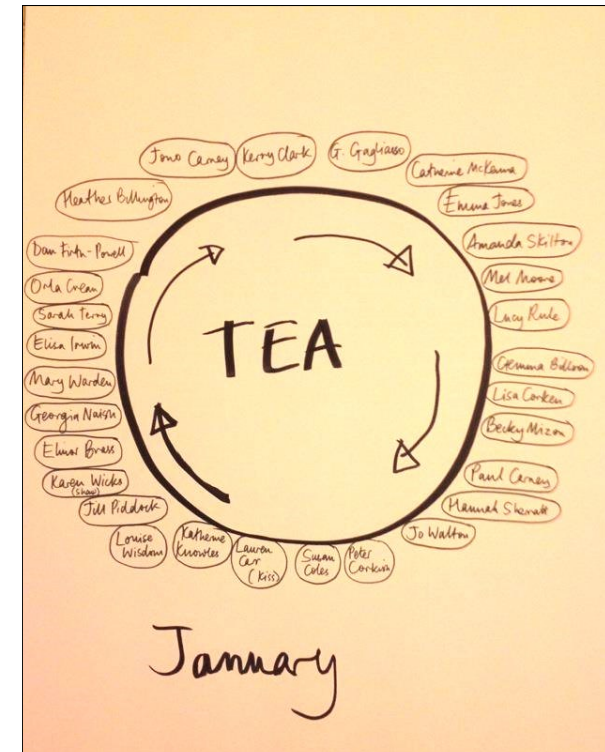 Jono Carney
Kerry Clark
G. Gagliasso
Catherine McKenna
Emma Jones
Amanda Skilton
Mel Moore
Lucy Rule
Gemma
Lisa Corken
Becky Mizon
Paul Carney
Hannah
Jo Walton
Peter
Susan
Coles
Lauren
Carr
(Kiss)
Katherine
Knowles
Louise
Wisdom
Jill Piddock
Karen Wicks
(Shaw)
Elinor Brass
Georgia Naish
Mary Warden
Elisa Irwin
Sarah Terry
Orla Crean
Dan Firth-Powell
Heather Billington
TEA
January